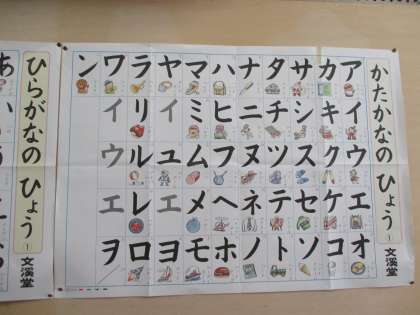 かたかなの ひょう 1 文溪堂
アイウエオ
カキクケコ
サシスセソ
タチツテト
ナニヌネノ
ハヒフヘホ
マミムメモ
ヤイユエヨ
ラリルレロ
ワイウエヲ
ン
ひらがなの ひょう 1 文溪堂
あい